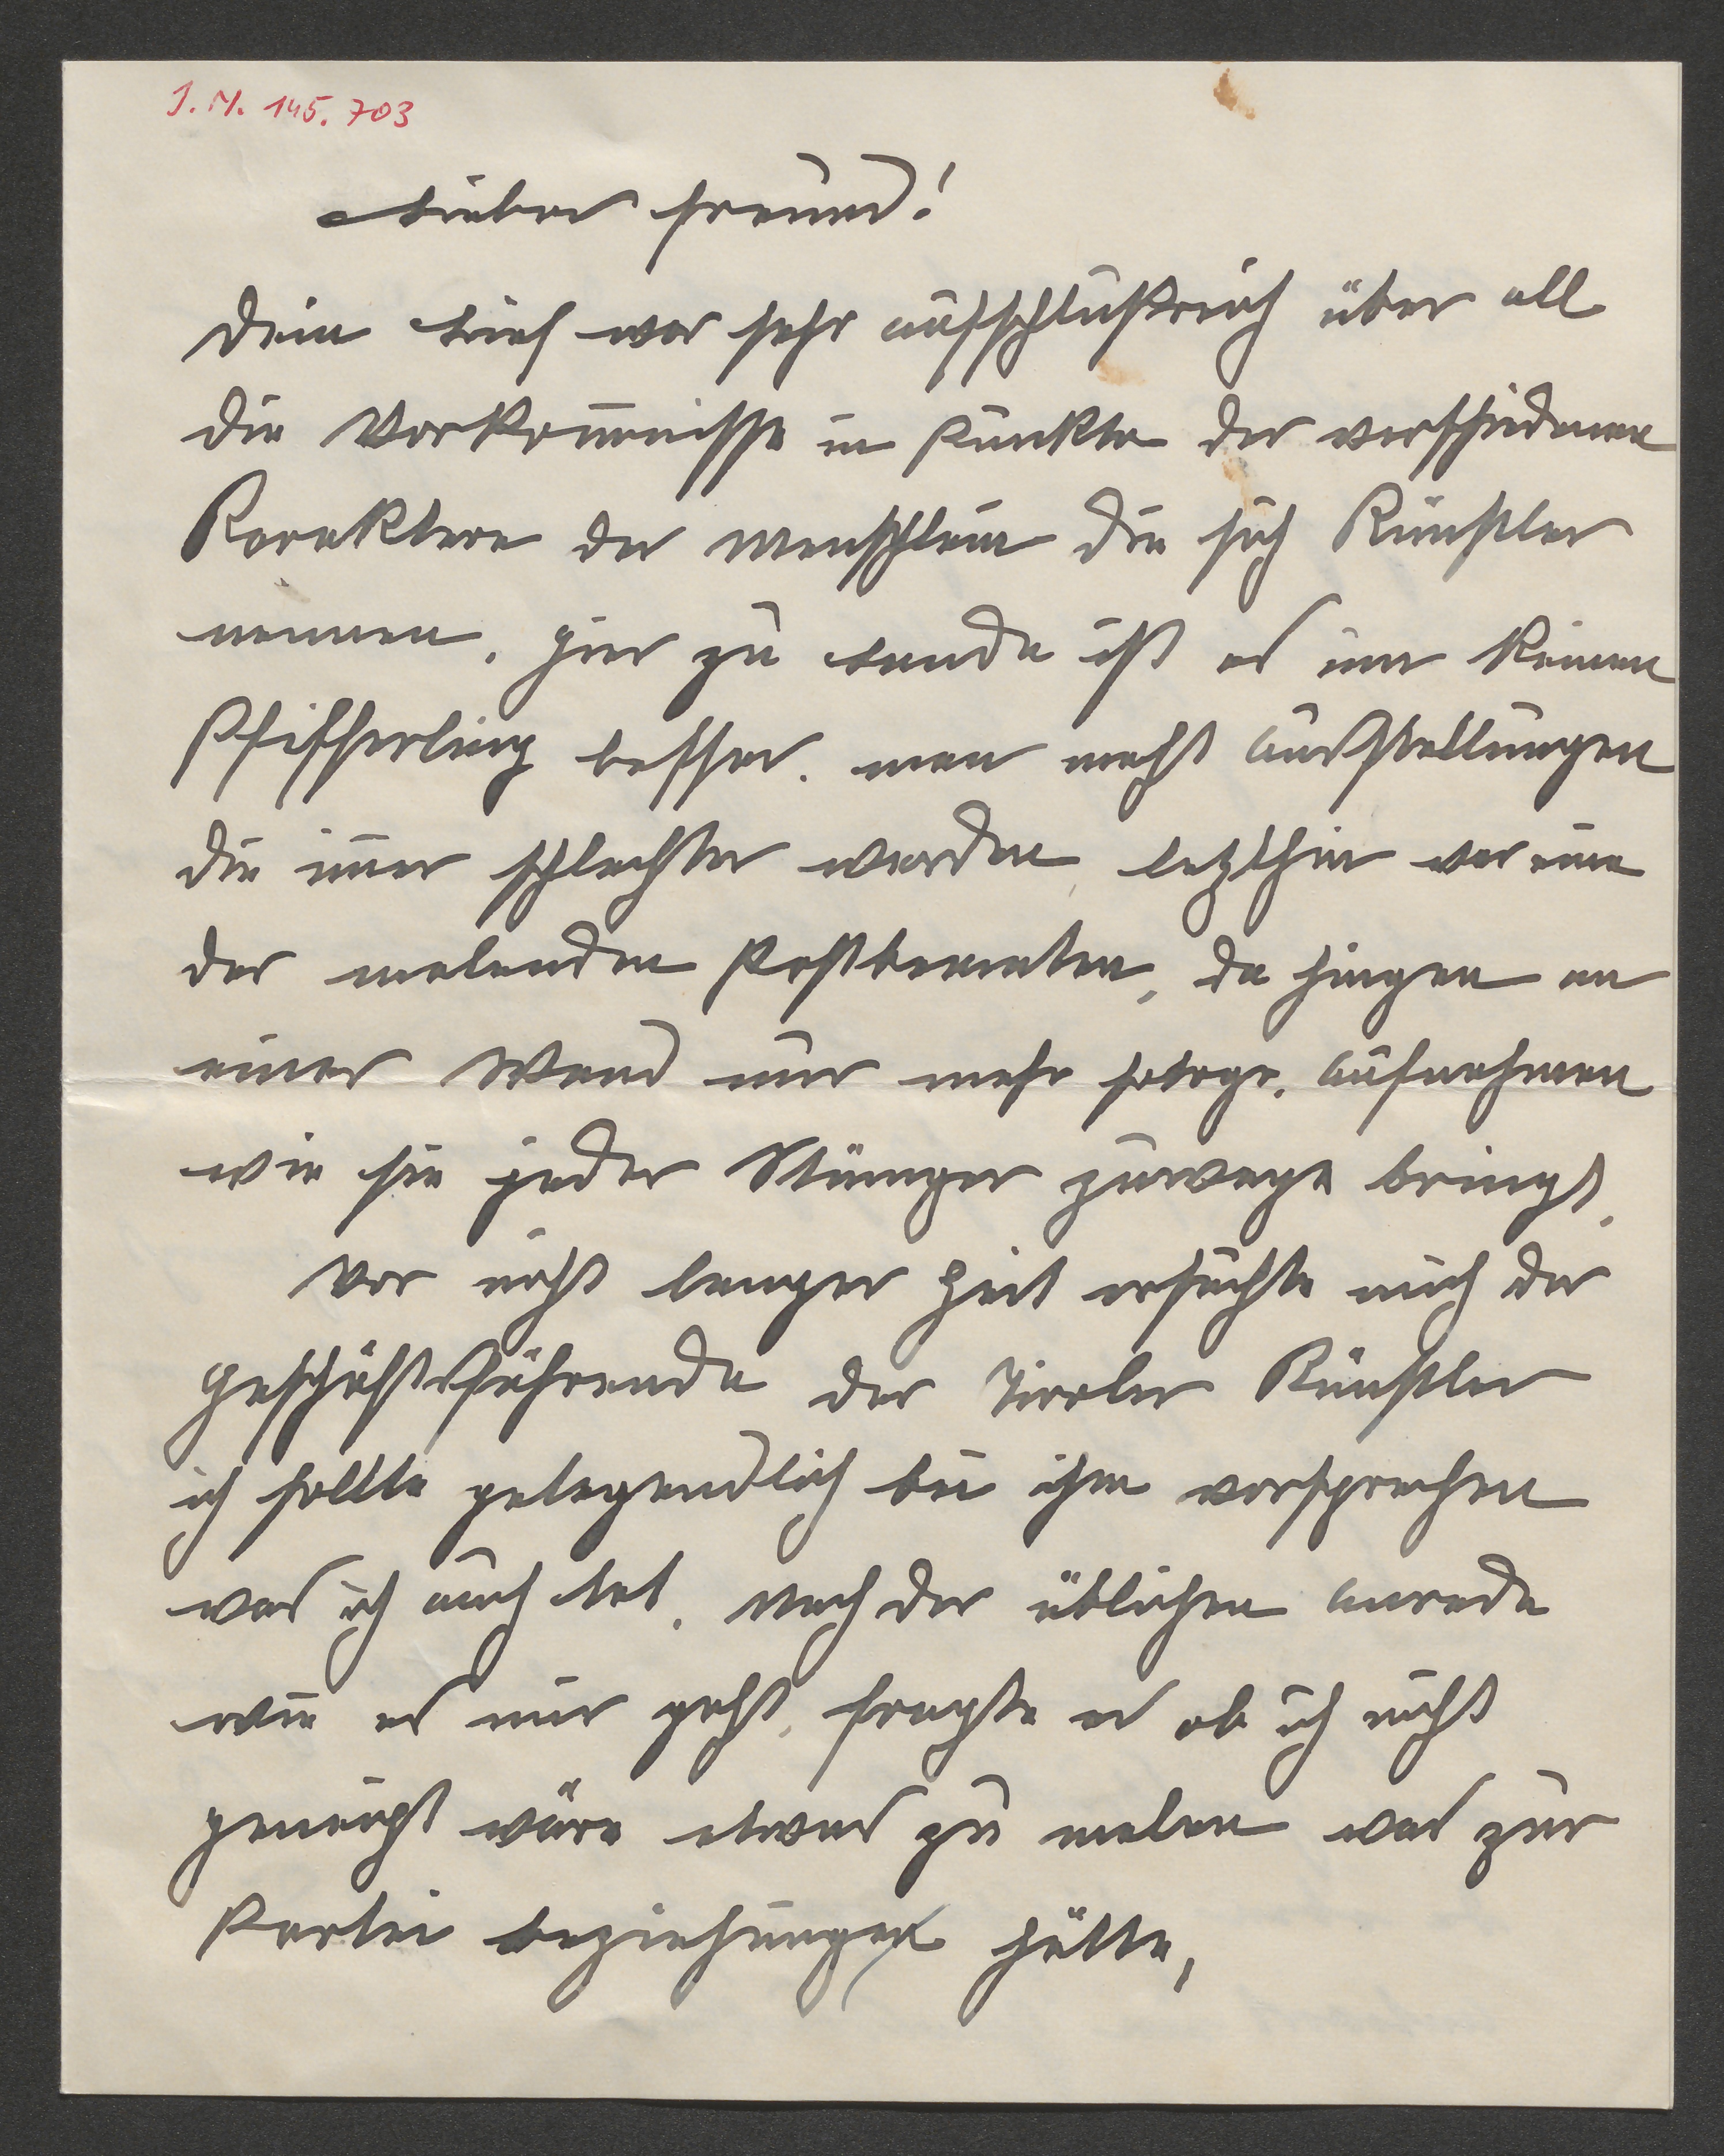 J.N. 145.703
Lieber Freund!
Dein Brief war sehr aufschlußreich über all
die Vorkom̄nisse in Punkto der verschiedenen
Karaktere der Menschlein die sich Künstler
nennen. Hier zu Lande ist es um keinen
Pfifferling besser. man macht Ausstellungen
die im̄er schlechter werden, letzthin war eine
der malenden Postbeamten, da hingen an
einer Wand nur mehr fotogr. Aufnahmen
wie sie jeder Stümper zuwege bringt.
Vor nicht langer Zeit ersuchte mich der
Geschäftsführende der Tiroler Künstler
ich sollte gelegendlich bei ihm vorsprechen
was ich auch tat. Nach der üblichen Anrede
wie es mir geht, fragte er ob ich nicht
geneigt wäre etwas zu malen was zur
Partei Beziehungen hätte,